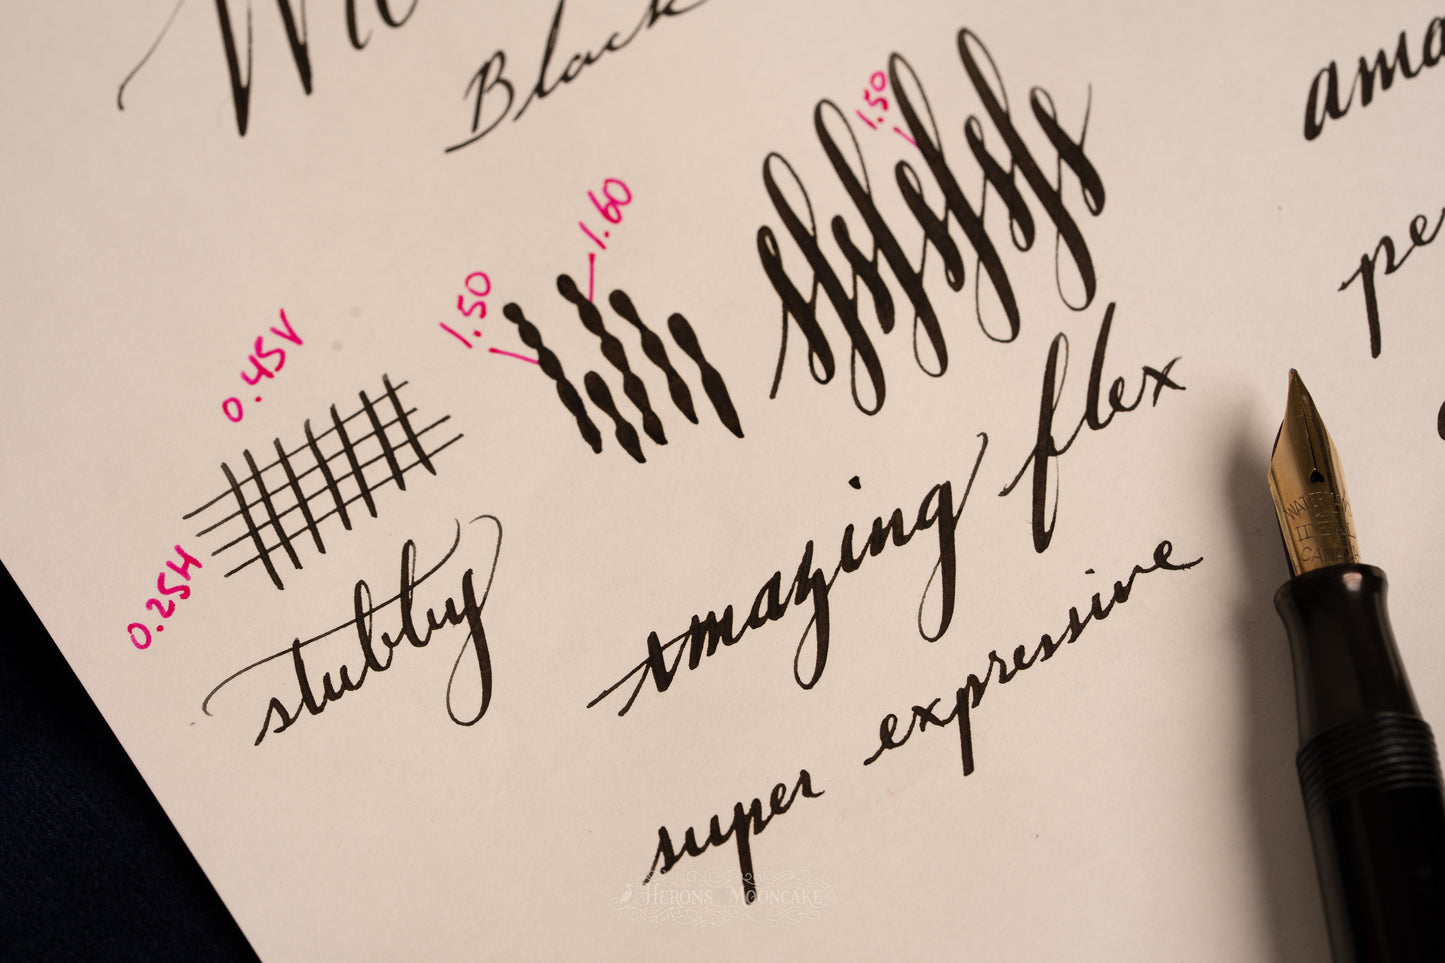 Black
1.50
ama
1.60
1.50
0.45V
0.25H
stubby
amazing flex
super expressive
WATERMAN'S
IDEAL
CANADA
HERONS MOONCAKE